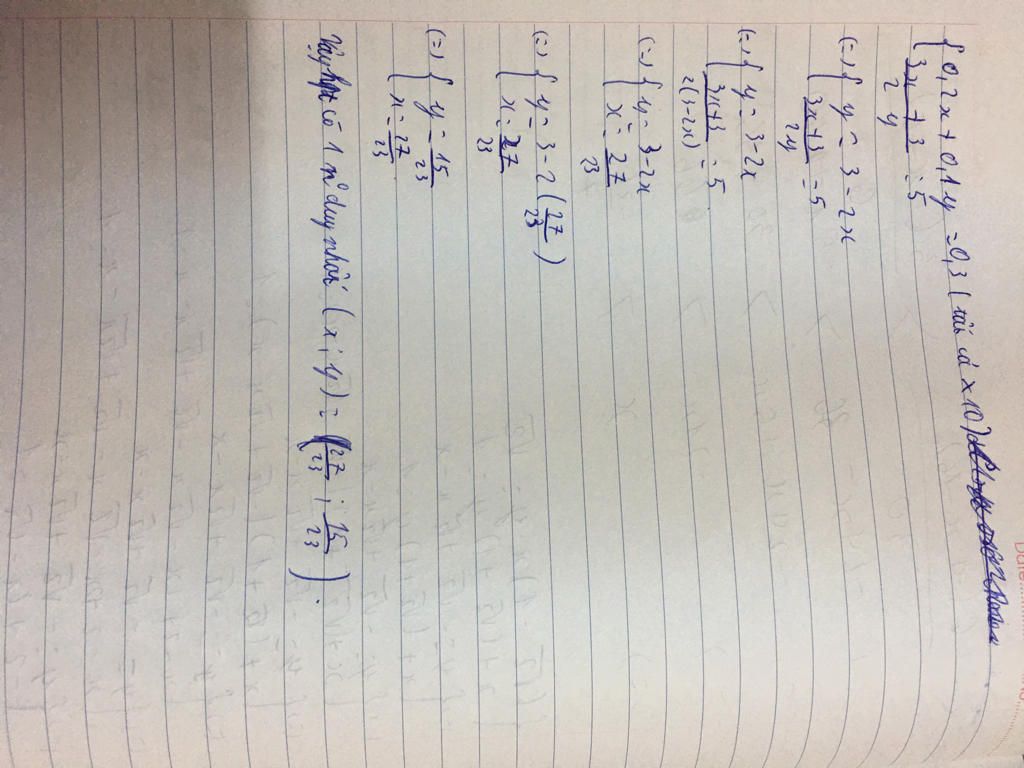 { 0,2x + 0,1y = 0,3 ( x 10)
{ 3x + 3 / 2y = 5
(=) { y = 3 - 2x
{ 3x+3 / 2y = 5
(=) { y = 3 - 2x
{ 3x+3 / 2(3-2x) = 5
(=) { y = 3 - 2x
{ x = 27/23
(=) { y = 3 - 2 ( 27/23 )
{ x = 27/23
(=) { y = 15/23
{ x = 27/23
Vậy hpt có 1 n° duy nhất ( x ; y ) = ( 27/23 ; 15/23 ) .